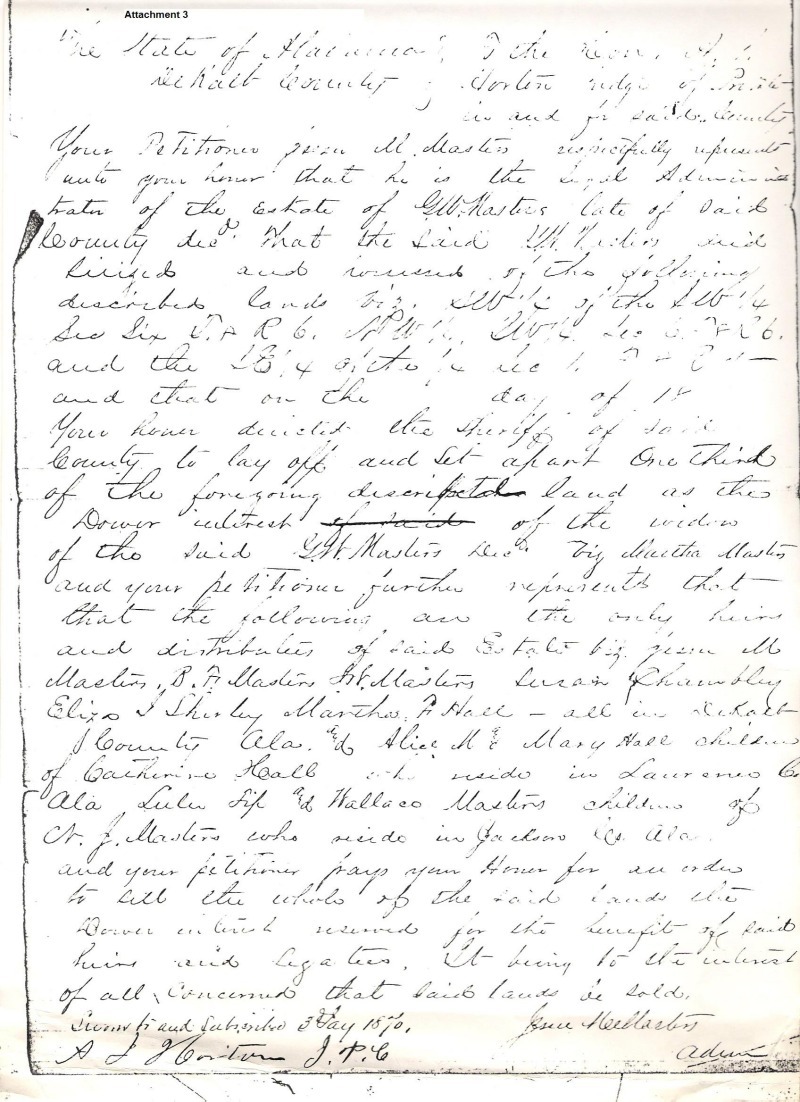 Attachment 3
The State of Alabama To the Hon. A.
DeKalb County Horton Judge of Probate
in and for said County
Your Petitioner Jesse M. Masters respectfully represents
unto your honor that he is the legal Adminis
trator of the Estate of G.W. Masters late of said
County decd. That the said G.W. Masters died
seized and possessed of the following
described lands viz. SW 1/4 of the SW 1/4
Sec Six T. & R 6. NW 1/4 SW 1/4 Sec T & R 6.
and the SE 1/4 of the 1/4 Sec 1. T &
and that on the day of 18
Your honor directed the sheriff of said
County to lay off and set apart One third
of the foregoing described land as the
Dower interest of said of the widow
of the said G.W. Masters Decd viz Martha Masters
and your petitioner further represents that
that the following are the only heirs
and distributees of said Estate viz Jesse M
Masters, B. F. Masters Masters Susan Chumbley
Eliza J Shirley Martha F Hall – all in DeKalb
County Ala. & Alice M & Mary Hall children
of Catherine Hall who reside in Lawrence Co
Ala Lulu & Wallace Masters children of
N. J. Masters who reside in Jackson Co. Ala.
and your petitioner prays your Honor for an order
to sell the whole of the said lands the
Dower interest reserved for the benefit of said
heirs and legatees. It being to the interest
of all concerned that said lands be sold.
Sworn to and Subscribed 3 Jesse M Masters
A L Horton J. P. C Admr